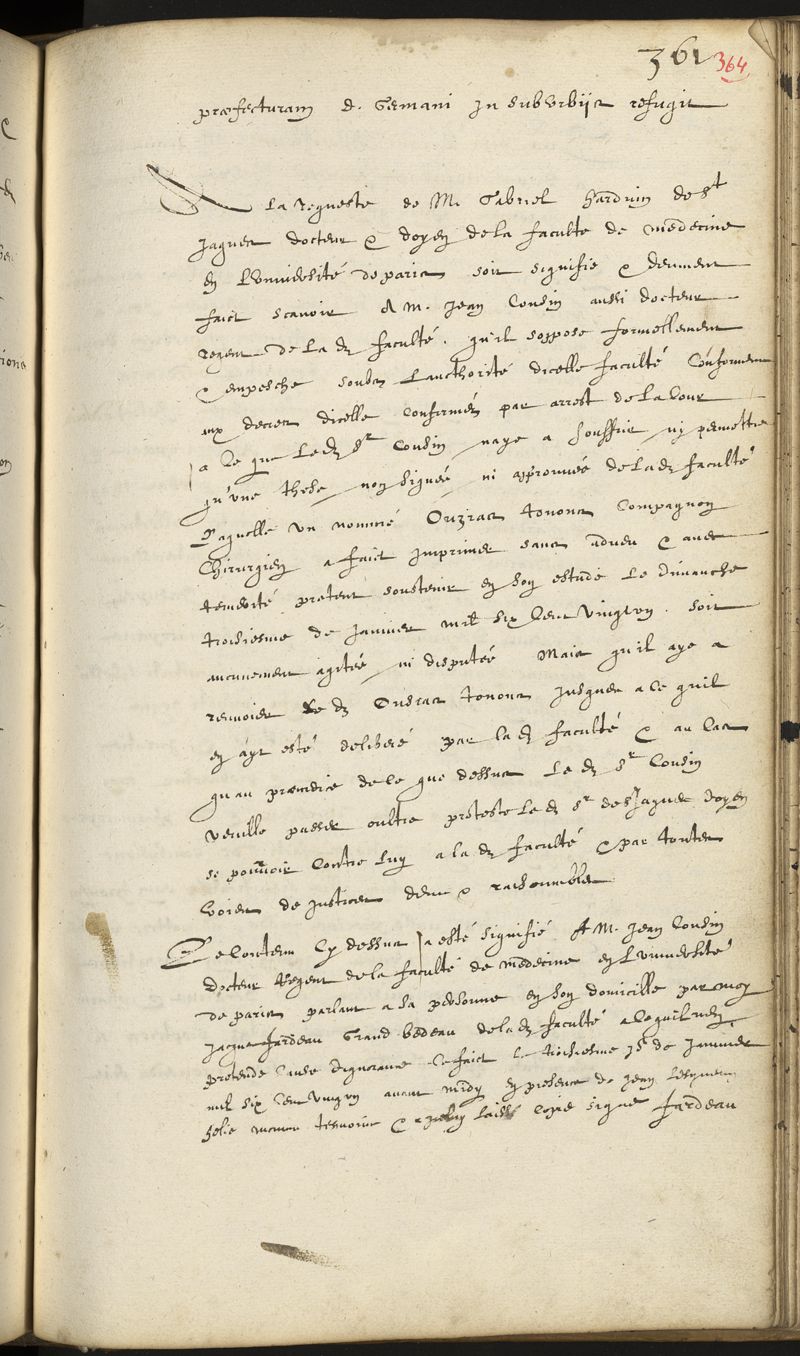 361 364
præfecturam d. Germani in suburbijs refugit
A la requeste de M. Gabriel Harduin de St
Jaques docteur & doyen de la faculte de medecine
en Luniversité de paris soit signifie & deument
faict scavoir A M. Jean Cousin aussi docteur
regent de la d faculté . qu'il soppose formellement
& empesche soubs Lauthorité dicelle faculté Conformement
aux decrets dicelle confirmés par arrest de la Cour
a ce que le d Sr Cousin naye a souffrir ny permettre
qu'une these non signée ni approuvée de la d faculté
Laquelle un nommé tonons Compagnon
Chirurgien a faict imprimer sans adveu & avec
temerité pretent soustenir en son estude le dimanche
troisiesme de janvier mil six cent vingt un . soit
aucunement agitée ni disputée Mais qu'il aye a
renvoier le d tonons jusques a ce quil
en ayt esté deliberé par la d faculté & au cas
qu au preiudice de ce que dessus le d Sr Cousin
veuille passer oultre proteste le d Sr de St Jaques doyen
se pourvoir contre luy a la d faculté & par toutes
voies de justices deues & raisonnables
Le contenu cy dessus a esté signifié A M. Jean Cousin
docteur Regent de la faculté de medecine en Luniversité
de paris parlant a sa personne en son domicille par moy
Jaques Jardeau Grand bedeau de la d faculté a ce quil nen
pretende cause dignorance ce faict le troisiesme jr de janvier
mil six cent vingt un avant midy en presence de Jean
tesmoins & a luy laissé copie signe Jardeau